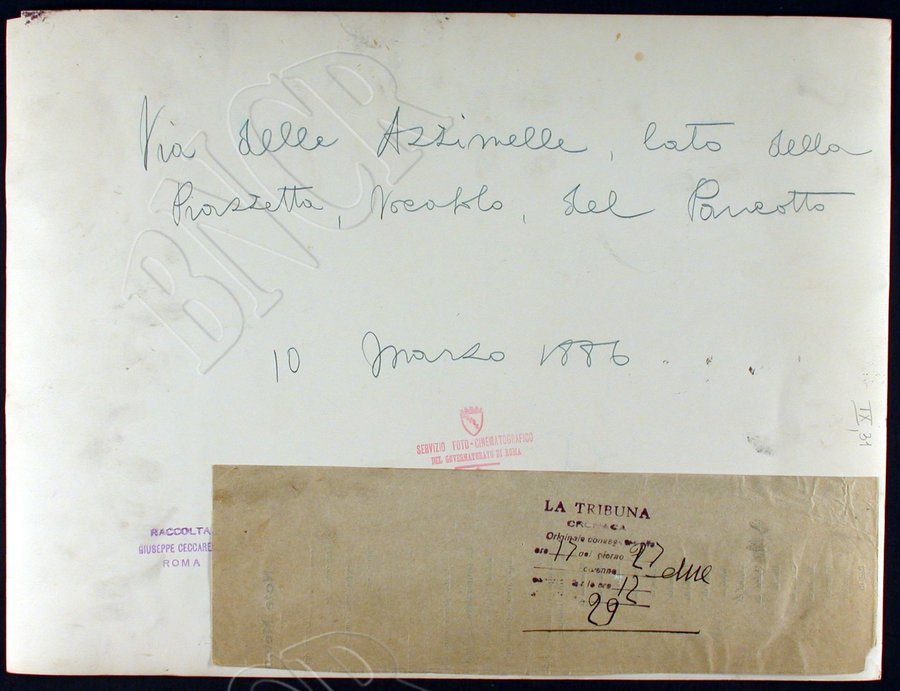 Via delle Azzimelle, lato della
Piazzetta, Vocabolo, del Pancotto
10 Marzo 1886
IX, 31
SERVIZIO FOTO-CINEMATOGRAFICO
DEL GOVERNATORATO DI ROMA
RACCOLTA
GIUSEPPE CECCARE
ROMA
LA TRIBUNA
CRONACA
Originale
ore 17 del giorno 27
due
le ore 12
29
BNCR
BNCR